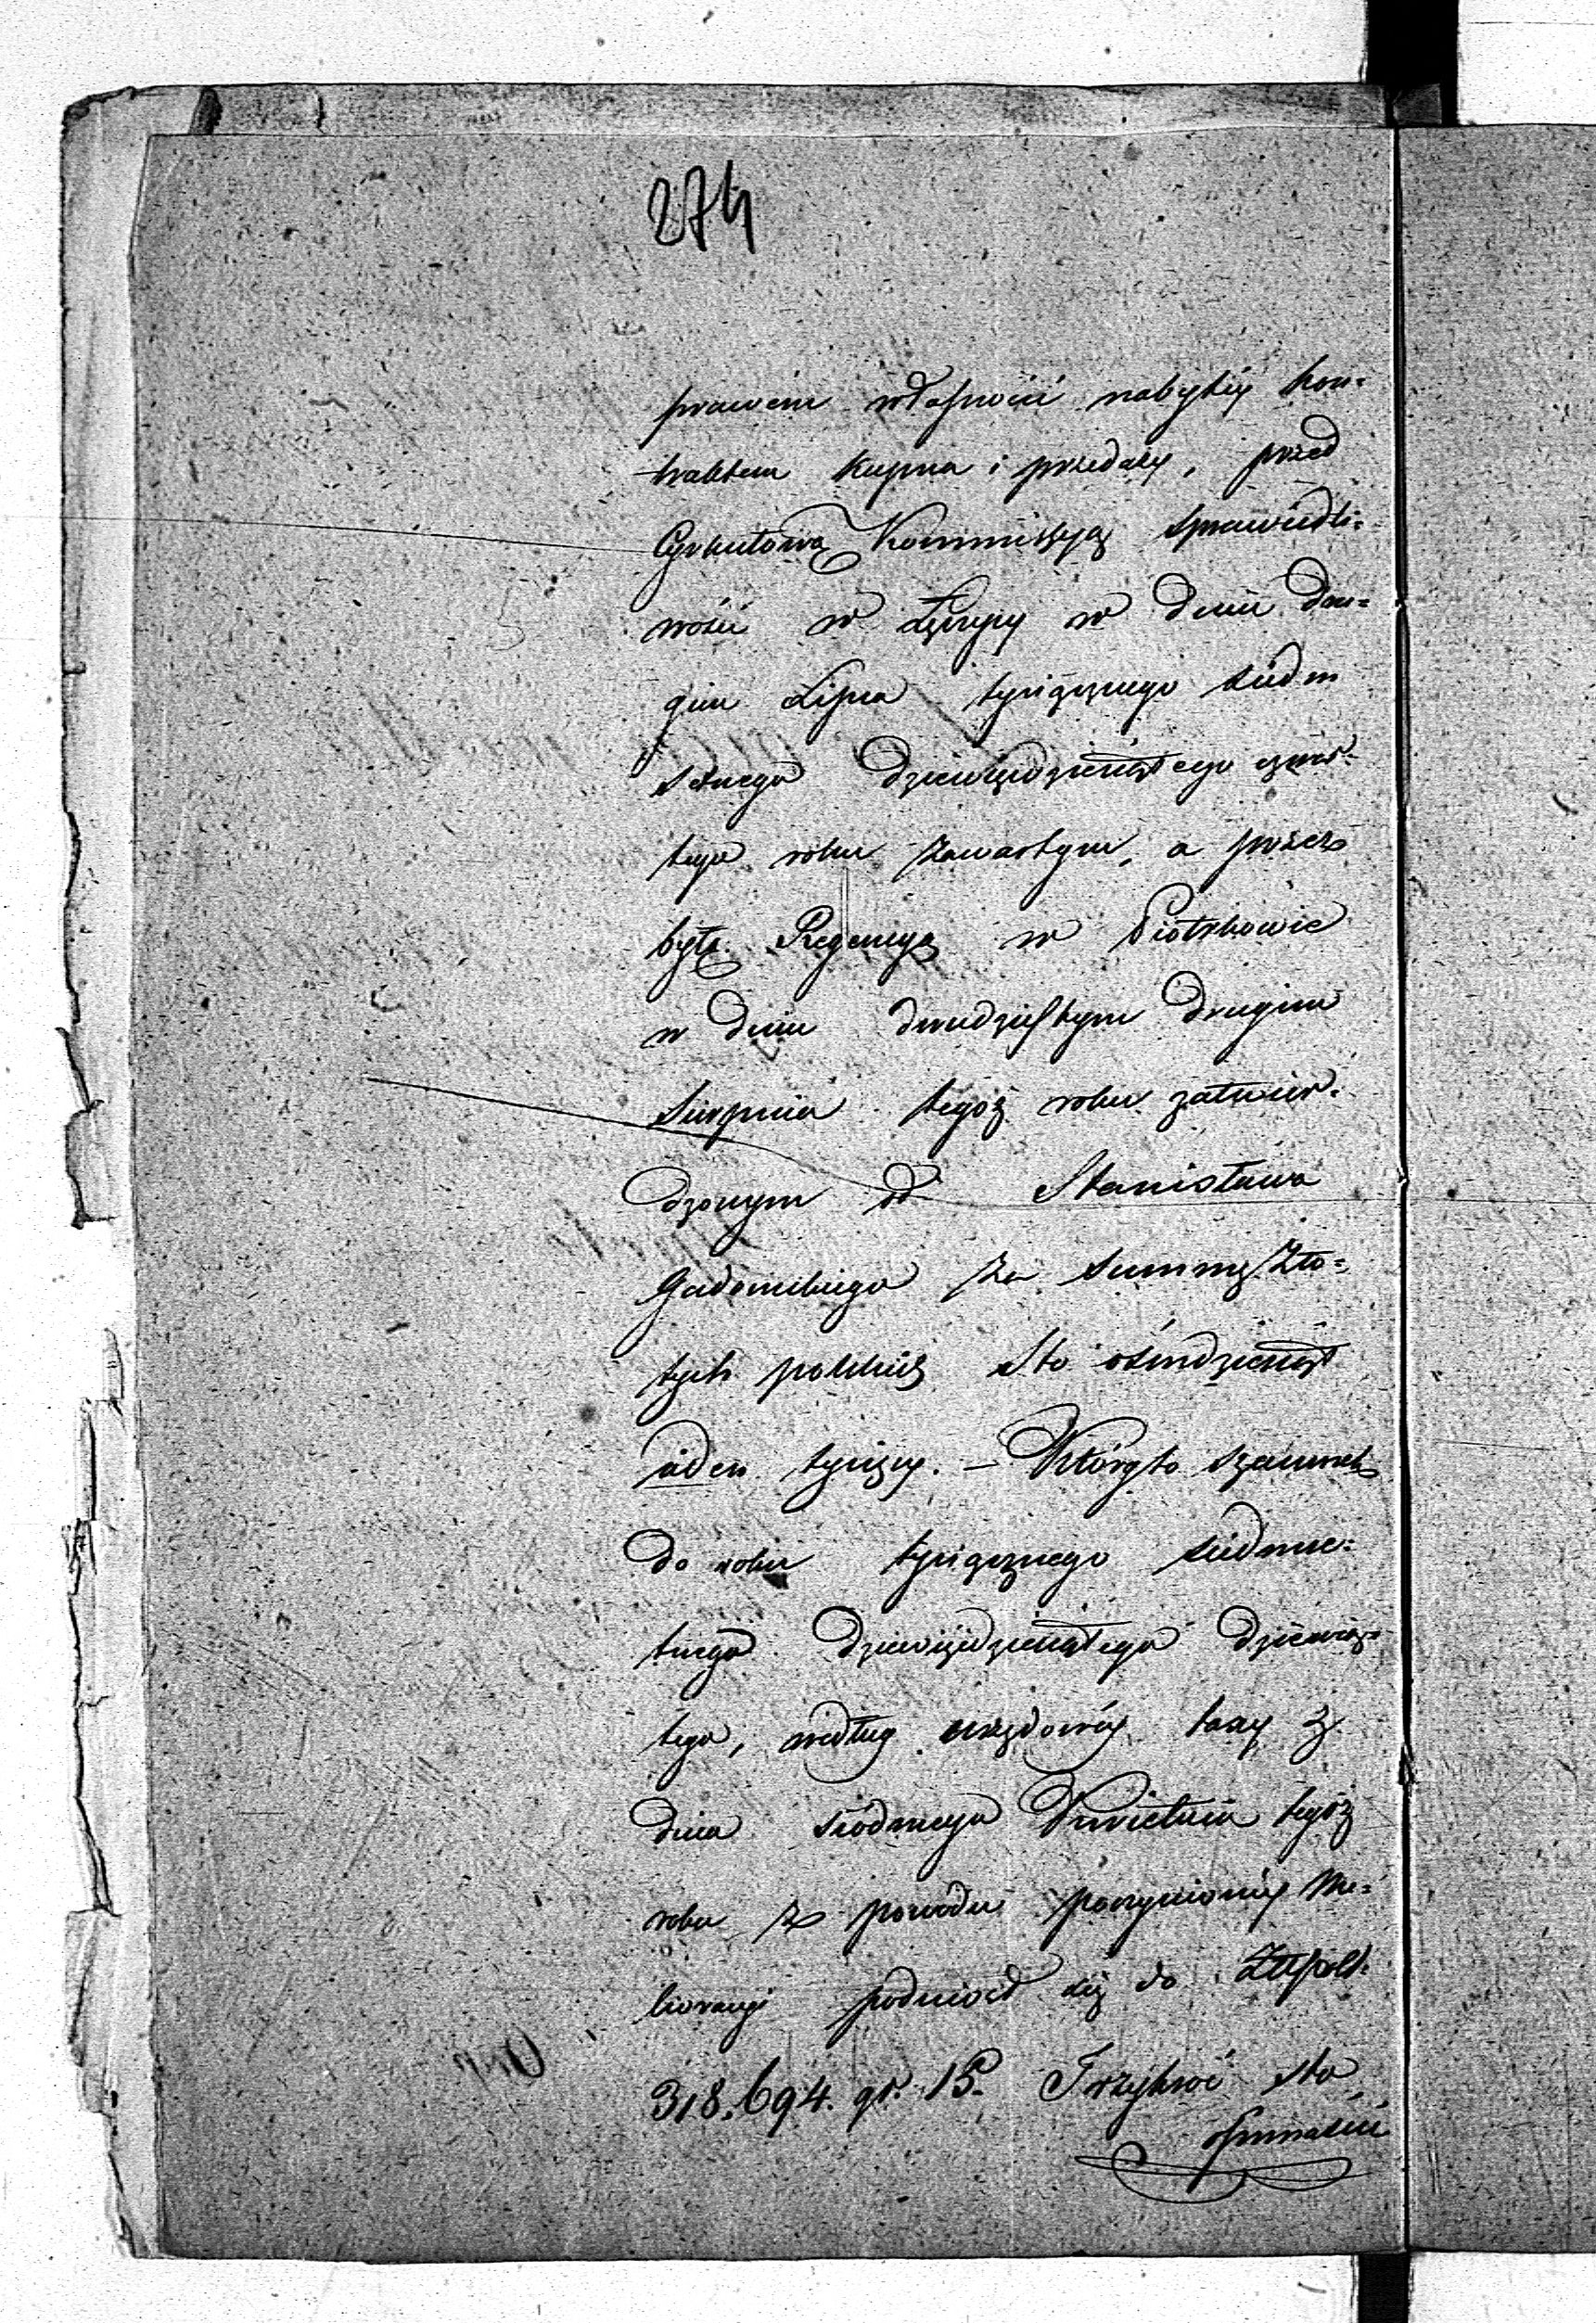 274
prawem własności nabytéy kon=
traktem Kupna i przedaży, przed
Cyrkułową Kommissyą Sprawiedli=
wości w Łęczycy w dniu dru=
gim Lipca tysiącznego siedm
setnego dziewiędziesiątego czwar=
tego roku zawartym, a przez
byłą Regencyą w Piotrkowie
w dniu dwudziestym drugim
Sierpnia tegoż roku zatwier=
dzonym od Stanisława
Gadomskiego za summę Zło=
tych polskich Sto ośmdziesiąt
ieden tysięcy. – Któryto szacunek
do roku tysiącznego siedmse=
tnego dziewiędziesiątego dziewią=
tego, według urzędowéy taxy z
dnia siódmego Kwietnia tegoż
roku z powodu poczynionéy Me=
lioracyi podniosł się do Złłpols.
318.694. gr. 15. Trzykroć sto
ośmnaście